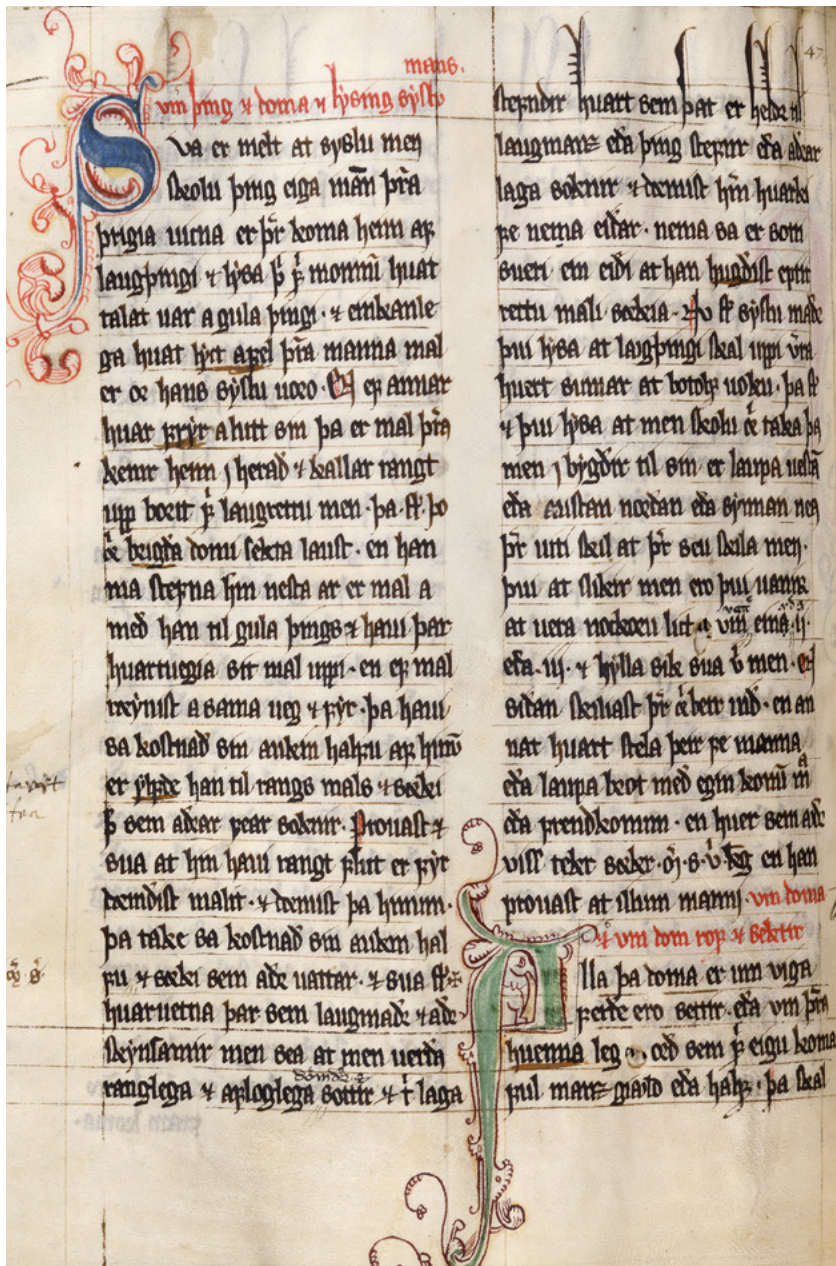 mans.
vm þing ⁊ doma ⁊ lysing syslu
Sva er mellt at syslu men
skolu þing eiga man þra
þrigia uicna er þr koma heim af
laugþingi ⁊ lysa þ f monnu huat
talat uar a gula þingi. ⁊ einkanle
ga huat hirt afel þra manna mal
er or hans syslu uoro. En ef annar
huar fryr a hitt sin þa er mal þra
kemr heim j herad ⁊ kallar rangt
upp borit f laugrettu men. þa. sk. þo
ei brigda domi sekta laust. en han
ma stefna hm nesta ar er mal a
med han til gula þings ⁊ haui þar
huartuegia sit mal uppi. en ef mal
reynist a sama ueg ⁊ fyr. þa haui
sa kostnad sin aukin halfu af hinu
er yfde han til rangs mals ⁊ sæki
þ sem adrar fear soknir. Prouast ⁊
sua at hm haui rangt flut er fyr
dæmdist malit. ⁊ dæmist þa hinum.
þa take sa kostnad sin aukin hal
fu ⁊ sæki sem ade uattar. ⁊ sua sk
huaruetna þar sem laugmadr ⁊ adr
skynsamir men sea at men uerda
ranglega ⁊ afloglega sottir ⁊ t laga
47
stefndir huart sem þat er helde til
laugmanz eda þing stefnur eda adrar
laga soknir ⁊ dæmist hm huarki
fe nema eidar. nema sa er som
sueri ein eidi at han hugdist eptir
rettu mali sækia. Nu sk syslu madr
þui lysa at laugþingi skal uppi vera
huert sumar at botolfs uoku. þa sk
⁊ þui lysa at men skolu ei taka þa
men j bygdir til sin er laupa uestan
eda austan nordan eda sunnan nea
þr uiti skil at þr seu skila men.
þui at slikir men ero þui uanir
at uera nockoru lut a vm eina .ij.
eda .iij. ⁊ hylla sik sua v men. en
sidan skiliast þr ei betr uid. en an
nat huart stela þeir fe manna
eda laupa brot med egin konu m
eda frendkonum. en huer sem adr
viss tekr sekr. mk. s. v. kg en han
prouast at illum manni. vm doma
⁊ vm dom rof ⁊ sektir
Alla þa doma er um viga
ferde ero settir. eda vm þra
huenna leg ord sem f eigu koma
ful manz giald eda half. þa skal